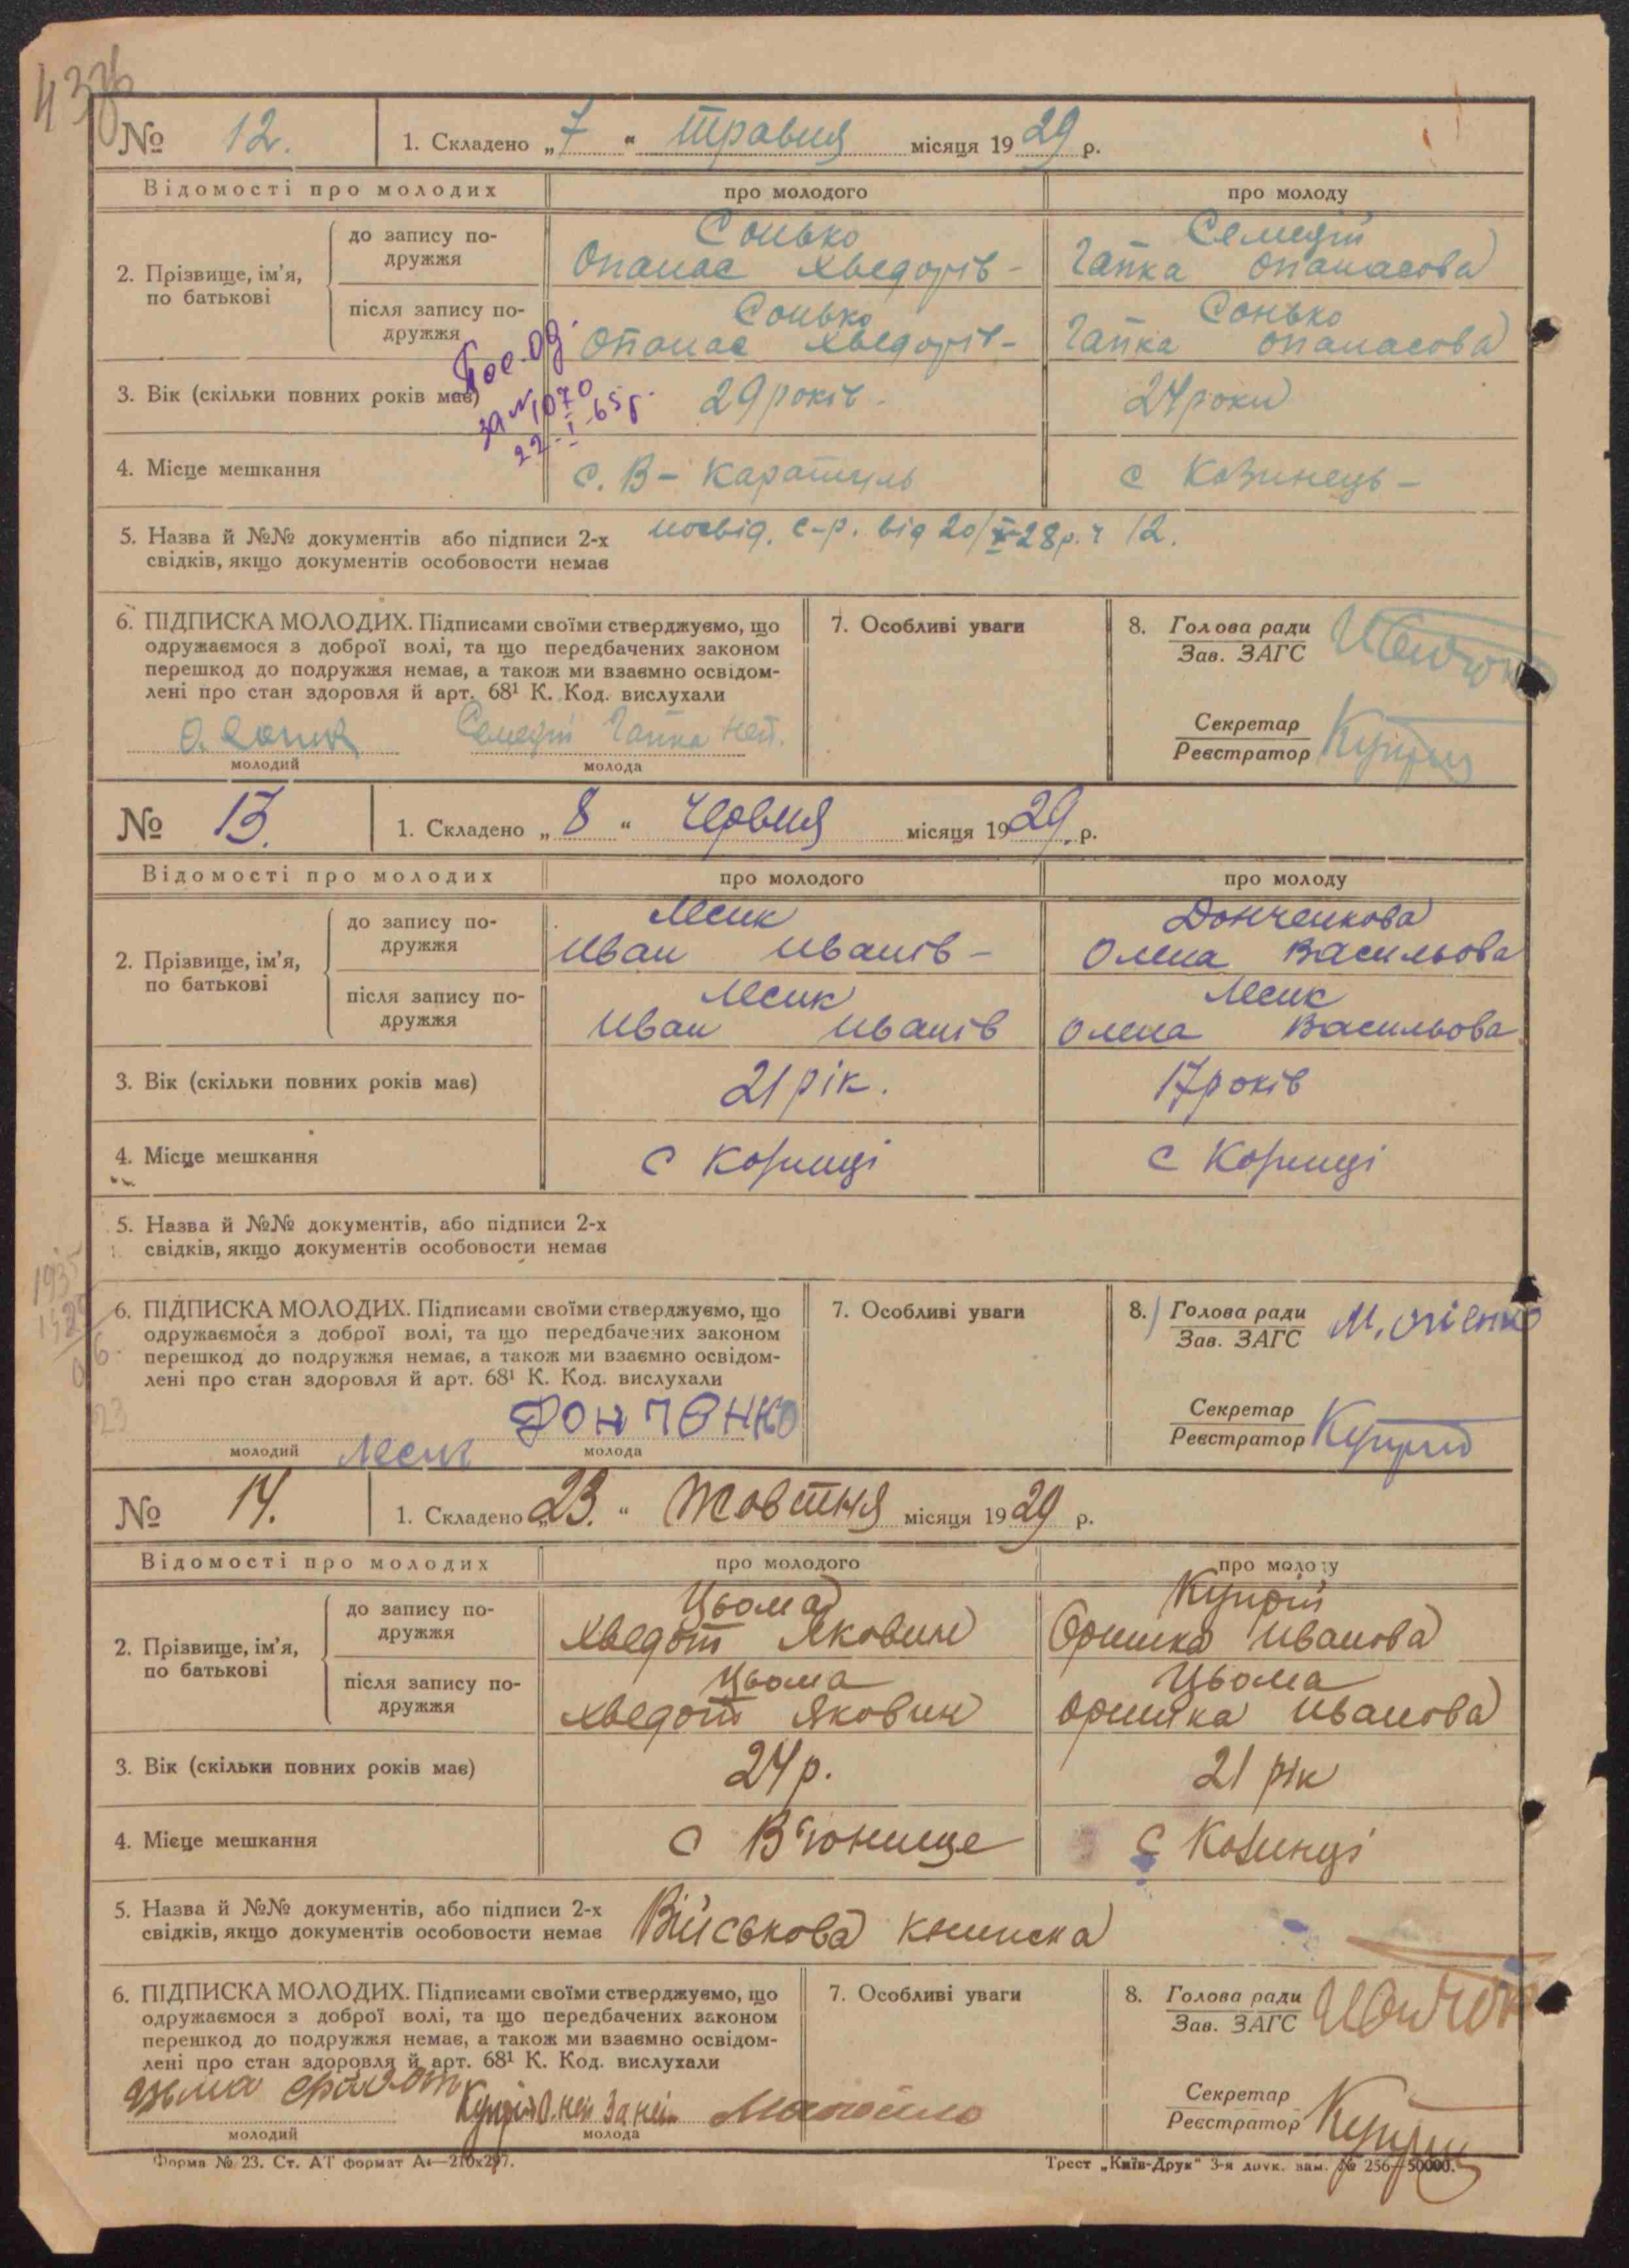 № 12. 1. Складено „7“ травня місяця 1929 р.
Відомості про молодих про молодого про молоду
2. Прізвище, ім'я, по батькові
до запису подружжя Сонько Семедій
Опанас Хведорів- Гапка Опанасова
після запису подружжя Сонько Сонько
Опанас Хведорів- Гапка Опанасова
Пос. од.
за № 1070
22-I-65 г.
3. Вік (скільки повних років має) 29 років. 24 роки
4. Місце мешкання с. В-Каратуль с Козинець-
5. Назва й №№ документів або підписи 2-х
свідків, якщо документів особовости немає
посвід. с-р. від 20/X-28р. ч 12.
6. ПІДПИСКА МОЛОДИХ. Підписами своїми стверджуємо, що
одружаємося з доброї волі, та що передбачених законом
перешкод до подружжя немає, а також ми взаємно освідом-
лені про стан здоровля й арт. 68¹ К. Код. вислухали
Семедій Гапка неп.
молодий молода
7. Особливі уваги
8. Голова ради
Зав. ЗАГС
Секретар
Реєстратор Купрій
№ 13. 1. Складено „8“ червня місяця 1929 р.
Відомості про молодих про молодого про молоду
2. Прізвище, ім'я, по батькові
до запису подружжя Лесик Донченкова
Иван Иванів- Олена Васильова
після запису подружжя Лесик Лесик
Иван Иванів Олена Васильова
3. Вік (скільки повних років має) 21 рік. 17 років
4. Місце мешкання с Коринці с Коринці
5. Назва й №№ документів, або підписи 2-х
свідків, якщо документів особовости немає
6. ПІДПИСКА МОЛОДИХ. Підписами своїми стверджуємо, що
одружаємося з доброї волі, та що передбачених законом
перешкод до подружжя немає, а також ми взаємно освідом-
лені про стан здоровля й арт. 68¹ К. Код. вислухали
ДОНЧЕНКО
молодий Лесик молода
7. Особливі уваги
8. Голова ради
Зав. ЗАГС
Секретар
Реєстратор Купрій
№ 14. 1. Складено „23.“ Жовтня місяця 1929 р.
Відомості про молодих про молодого про молоду
2. Прізвище, ім'я, по батькові
до запису подружжя Цьома Купрій
Хведот Яковин Оришка Иванова
після запису подружжя Цьома Цьома
Хведот Яковин Оришка Иванова
3. Вік (скільки повних років має) 24 р. 21 рік
4. Місце мешкання с В'юнище с Козинці
5. Назва й №№ документів, або підписи 2-х
свідків, якщо документів особовости немає
Військова книжка
6. ПІДПИСКА МОЛОДИХ. Підписами своїми стверджуємо, що
одружаємося з доброї волі, та що передбачених законом
перешкод до подружжя немає, а також ми взаємно освідом-
лені про стан здоровля й арт. 68¹ К. Код. вислухали
молодий молода
7. Особливі уваги
8. Голова ради
Зав. ЗАГС
Секретар
Реєстратор Купрій
Форма № 23. Ст. АТ формат А₄—210х297.
Трест „Київ-Друк“ 3-я друк. зам. № 256—50000.